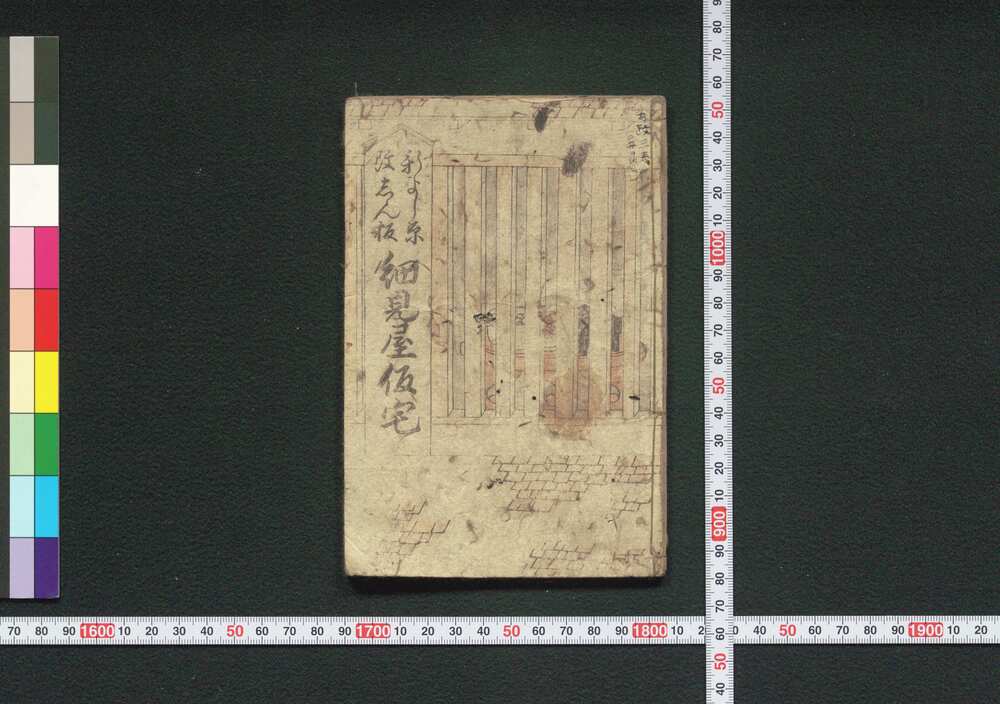 新よし原
改しん板
細見屋仮宅
90
80
70
60
50
40
30
20
10
1000
90
80
70
60
50
40
30
20
10
900
90
80
70
60
50
40
70 80 90 1600 10 20 30 40 50 60 70 80 90 1700 10 20 30 40 50 60 70 80 90 1800 10 2 30 40 50 60 70 80 90 1900 10 20